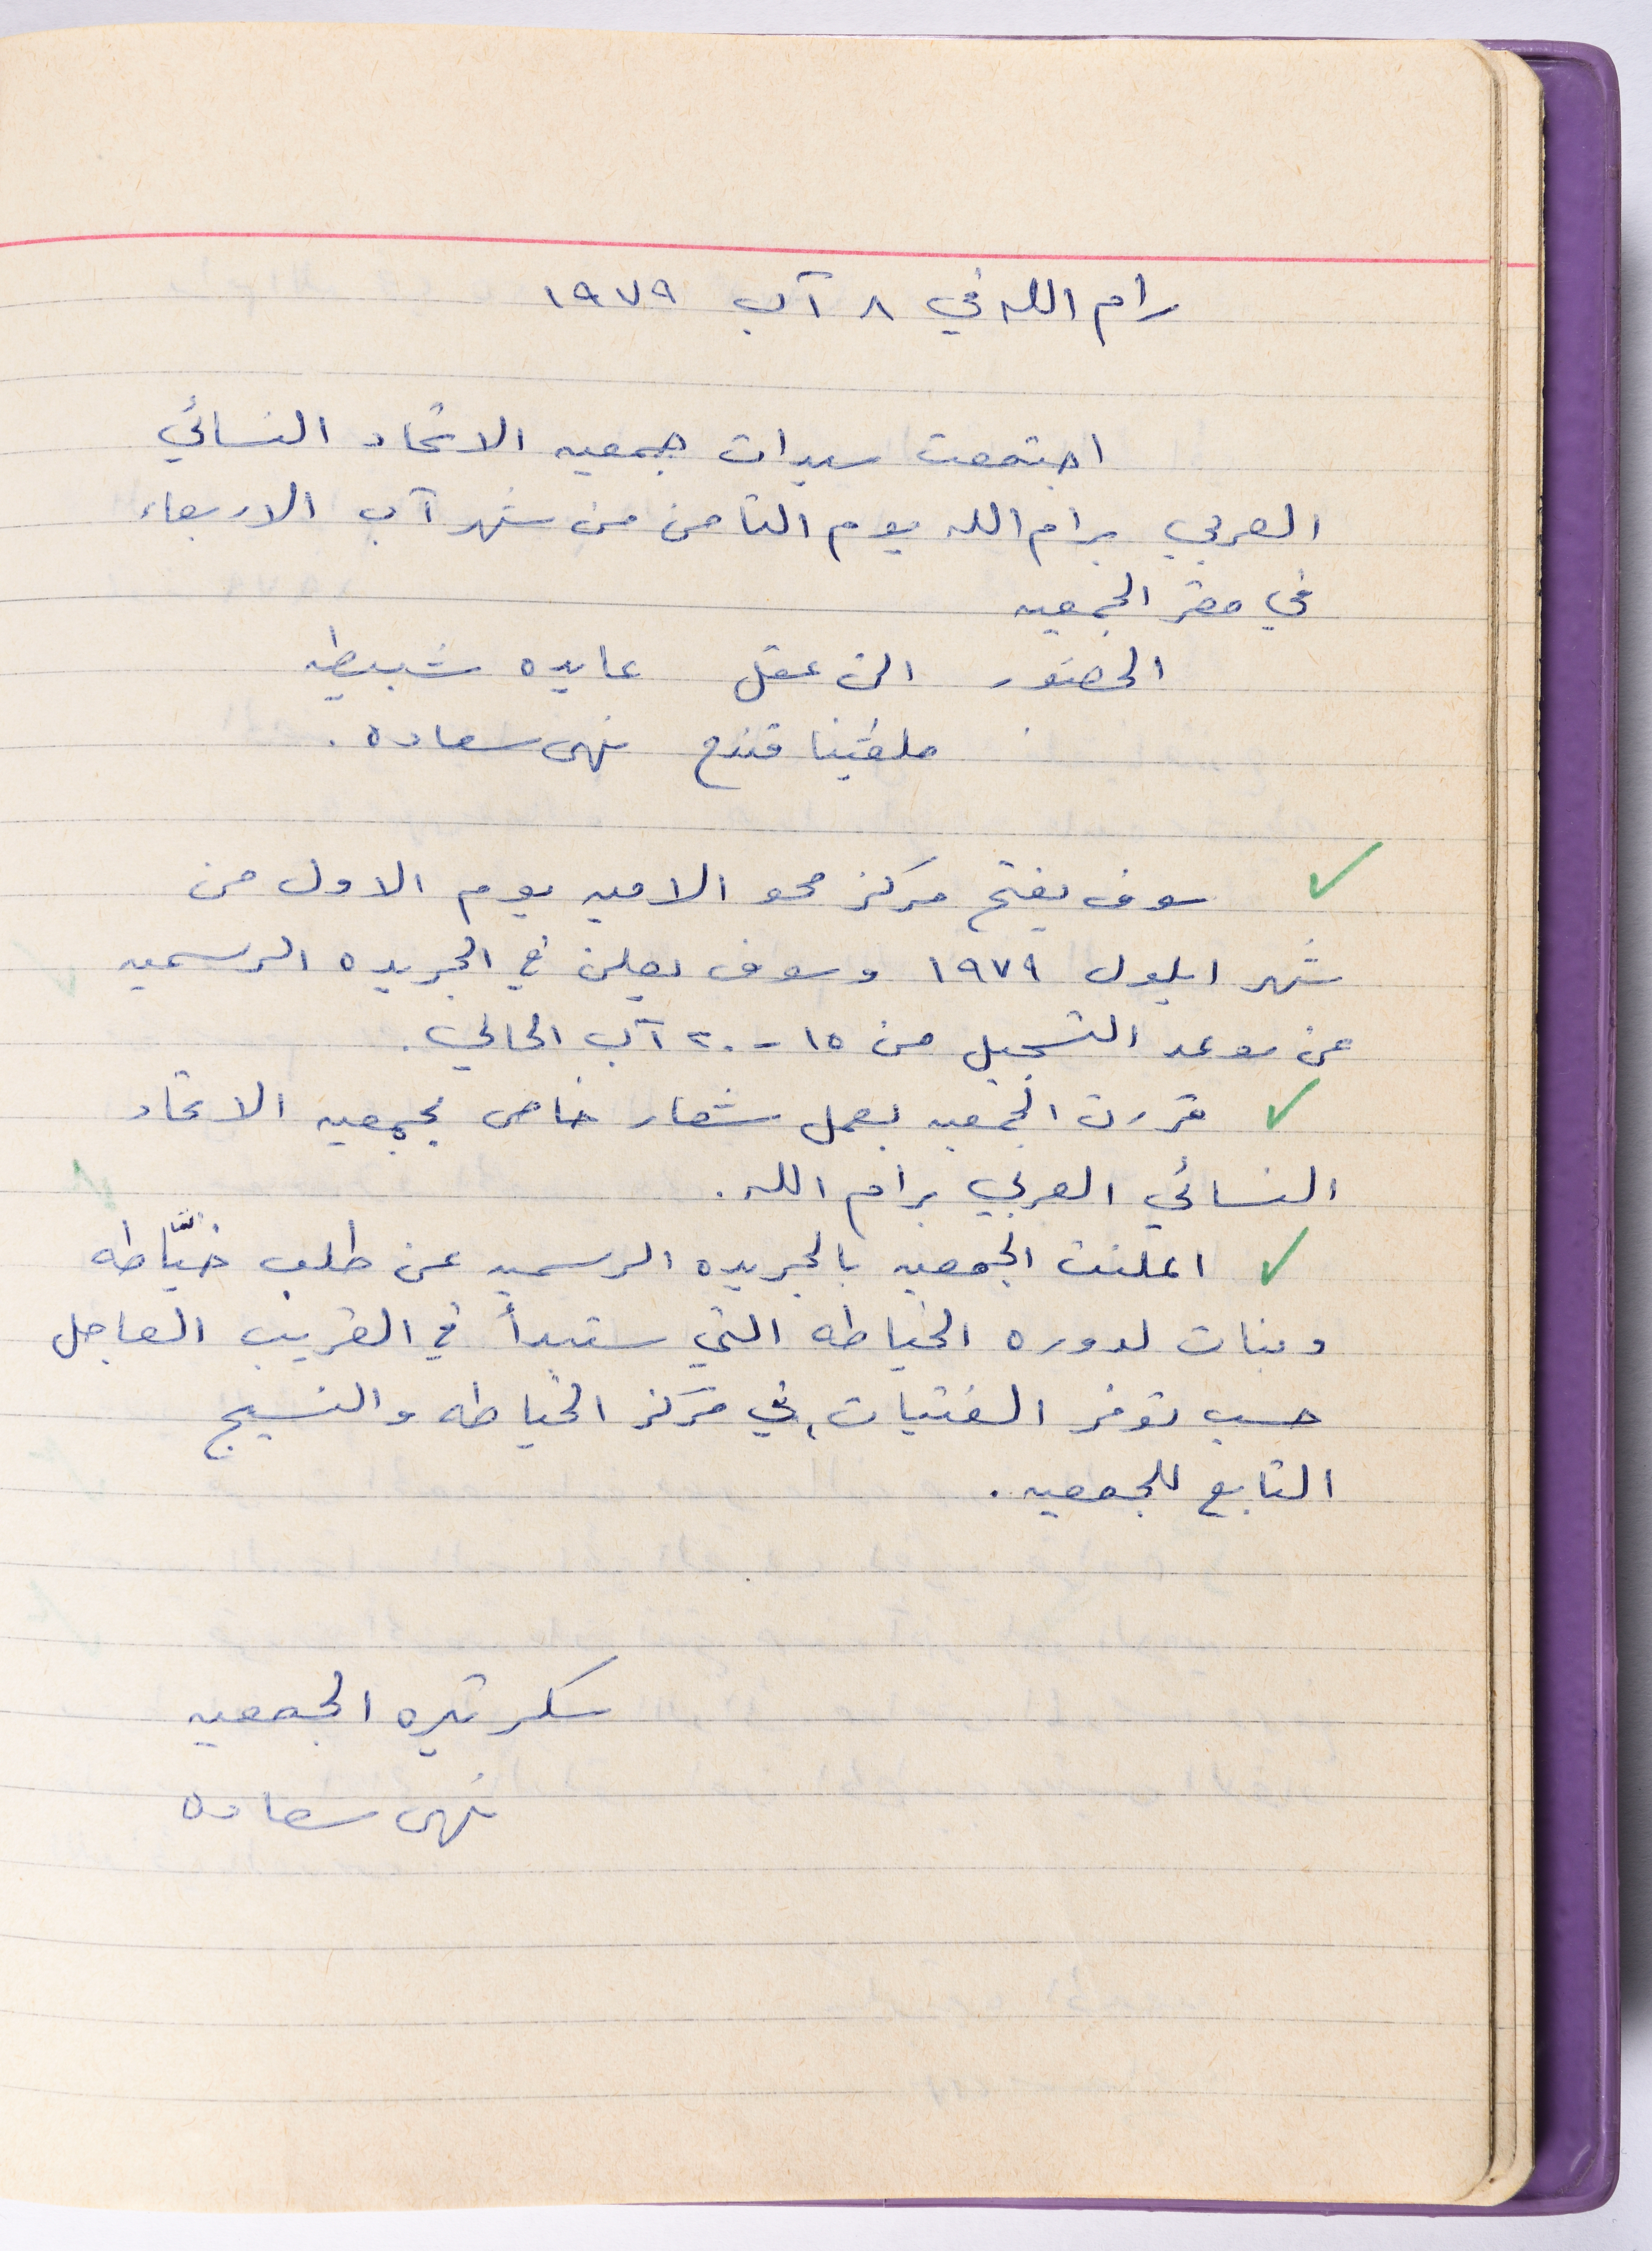 رام الله في ٨ آب ١٩٧٩
اجتمعت سيدات جمعيه الاتحاد النسائي
العربي برام الله يوم الثامن من شهر آب الاربعاء
في مقر الجمعيه
الحضور الن عقل عايده شبيطه
ملفينا قندح نهى سعاده .
سوف يفتح مركز محو الاميه يوم الاول من
شهر ايلول ١٩٧٩ وسوف يعلن في الجريده الرسميه
عن موعد التسجيل من ١٥ - ٢٠ آب الحالي .
قررت الجمعيه بعمل شعار خاص بجمعيه الاتحاد
النسائي العربي برام الله .
اعلنت الجمعيه بالجريده الرسميه عن طلب خيّاطه
وبنات لدوره الخياطه التي ستبدأ في القريب العاجل
حسب توفر الفتيات، في مركز الخياطه والنسيج
التابع للجمعيه .
سكرتيره الجمعيه
نهى سعاده